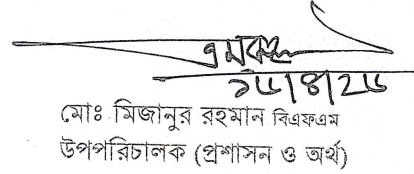 মোঃ মিজানুর রহমান বিএফএম
উপপরিচালক (প্রশাসন ও অর্থ)